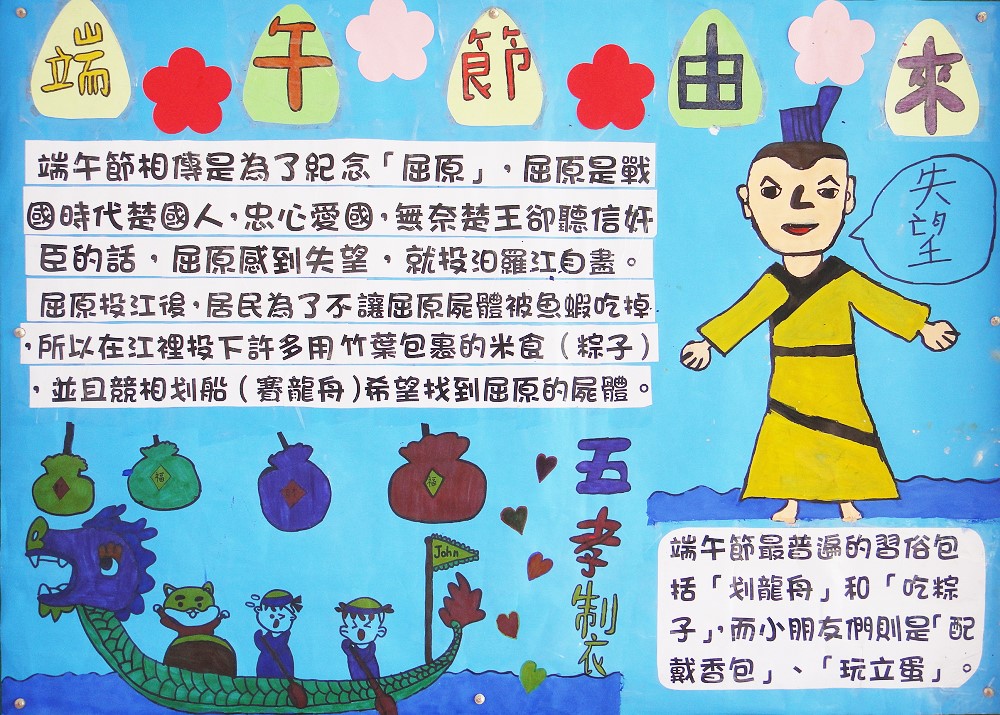 端午節由來
端午節相傳是為了紀念「屈原」，屈原是戰
國時代楚國人，忠心愛國，無奈楚王卻聽信奸
臣的話，屈原感到失望，就投汨羅江自盡。
屈原投江後，居民為了不讓屈原屍體被魚蝦吃掉
，所以在江裡投下許多用竹葉包裹的米食（粽子）
，並且競相划船（賽龍舟）希望找到屈原的屍體。
失望
福
福
John
五孝制衣
端午節最普遍的習俗包
括「划龍舟」和「吃粽
子」，而小朋友們則是「配
戴香包」、「玩立蛋」。